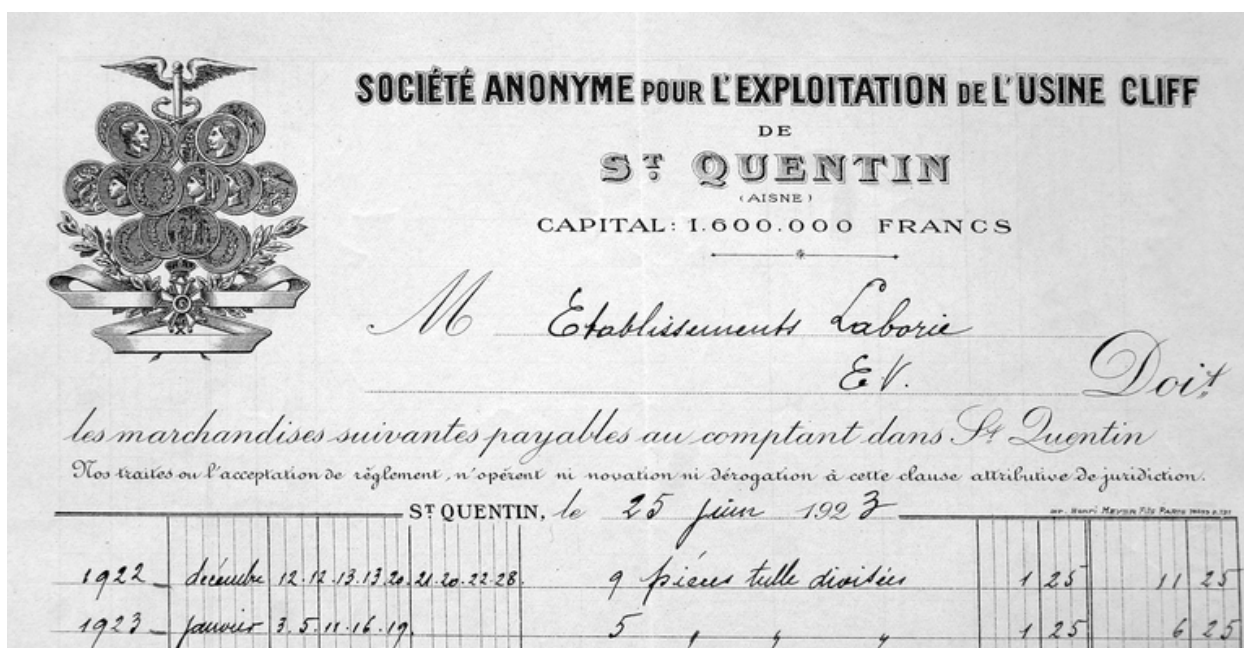 SOCIÉTÉ ANONYME POUR L'EXPLOITATION DE L'USINE CLIFF
DE
ST QUENTIN
(AISNE)
CAPITAL: 1.600.000 FRANCS
M Etablissements Laborie
E.V. Doit
les marchandises suivantes payables au comptant dans St Quentin
Nos traites ou l'acceptation de réglement, n'opèrent ni novation ni dérogation à cette clause attributive de juridiction.
ST QUENTIN, le 25 juin 1923
Imp. Henri MEYER Fils PARIS
1922 decémbre 12.12.13.13.20.21.20.22.28. 9 pièces tulle divisées 1 25 11 25
1923 janvier 3.5.11.16.19. 5 " " " 1 25 6 25